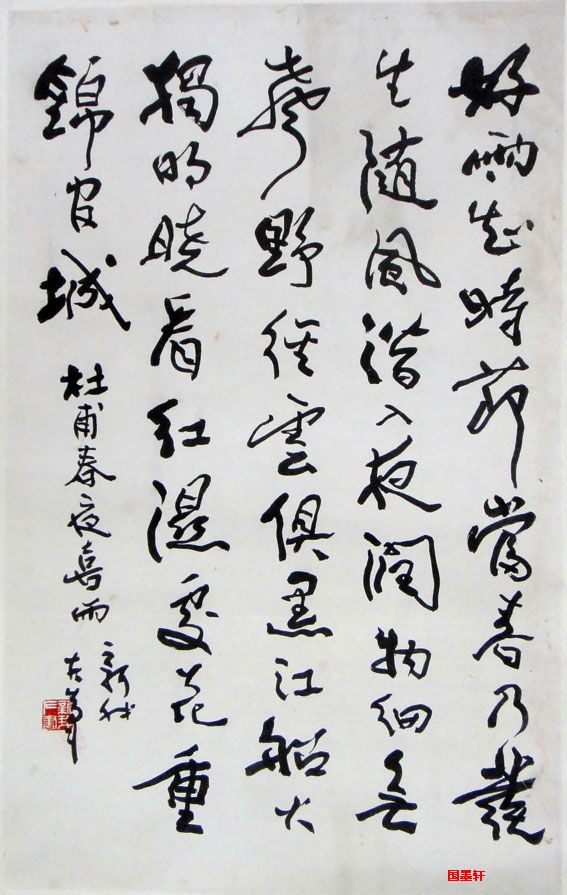 好雨知時節當春乃發
生隨風潛入夜潤物細無
聲野徑雲俱黑江船火
獨明曉看紅濕處花重
錦官城
杜甫春夜喜雨
新我
左筆
国墨轩